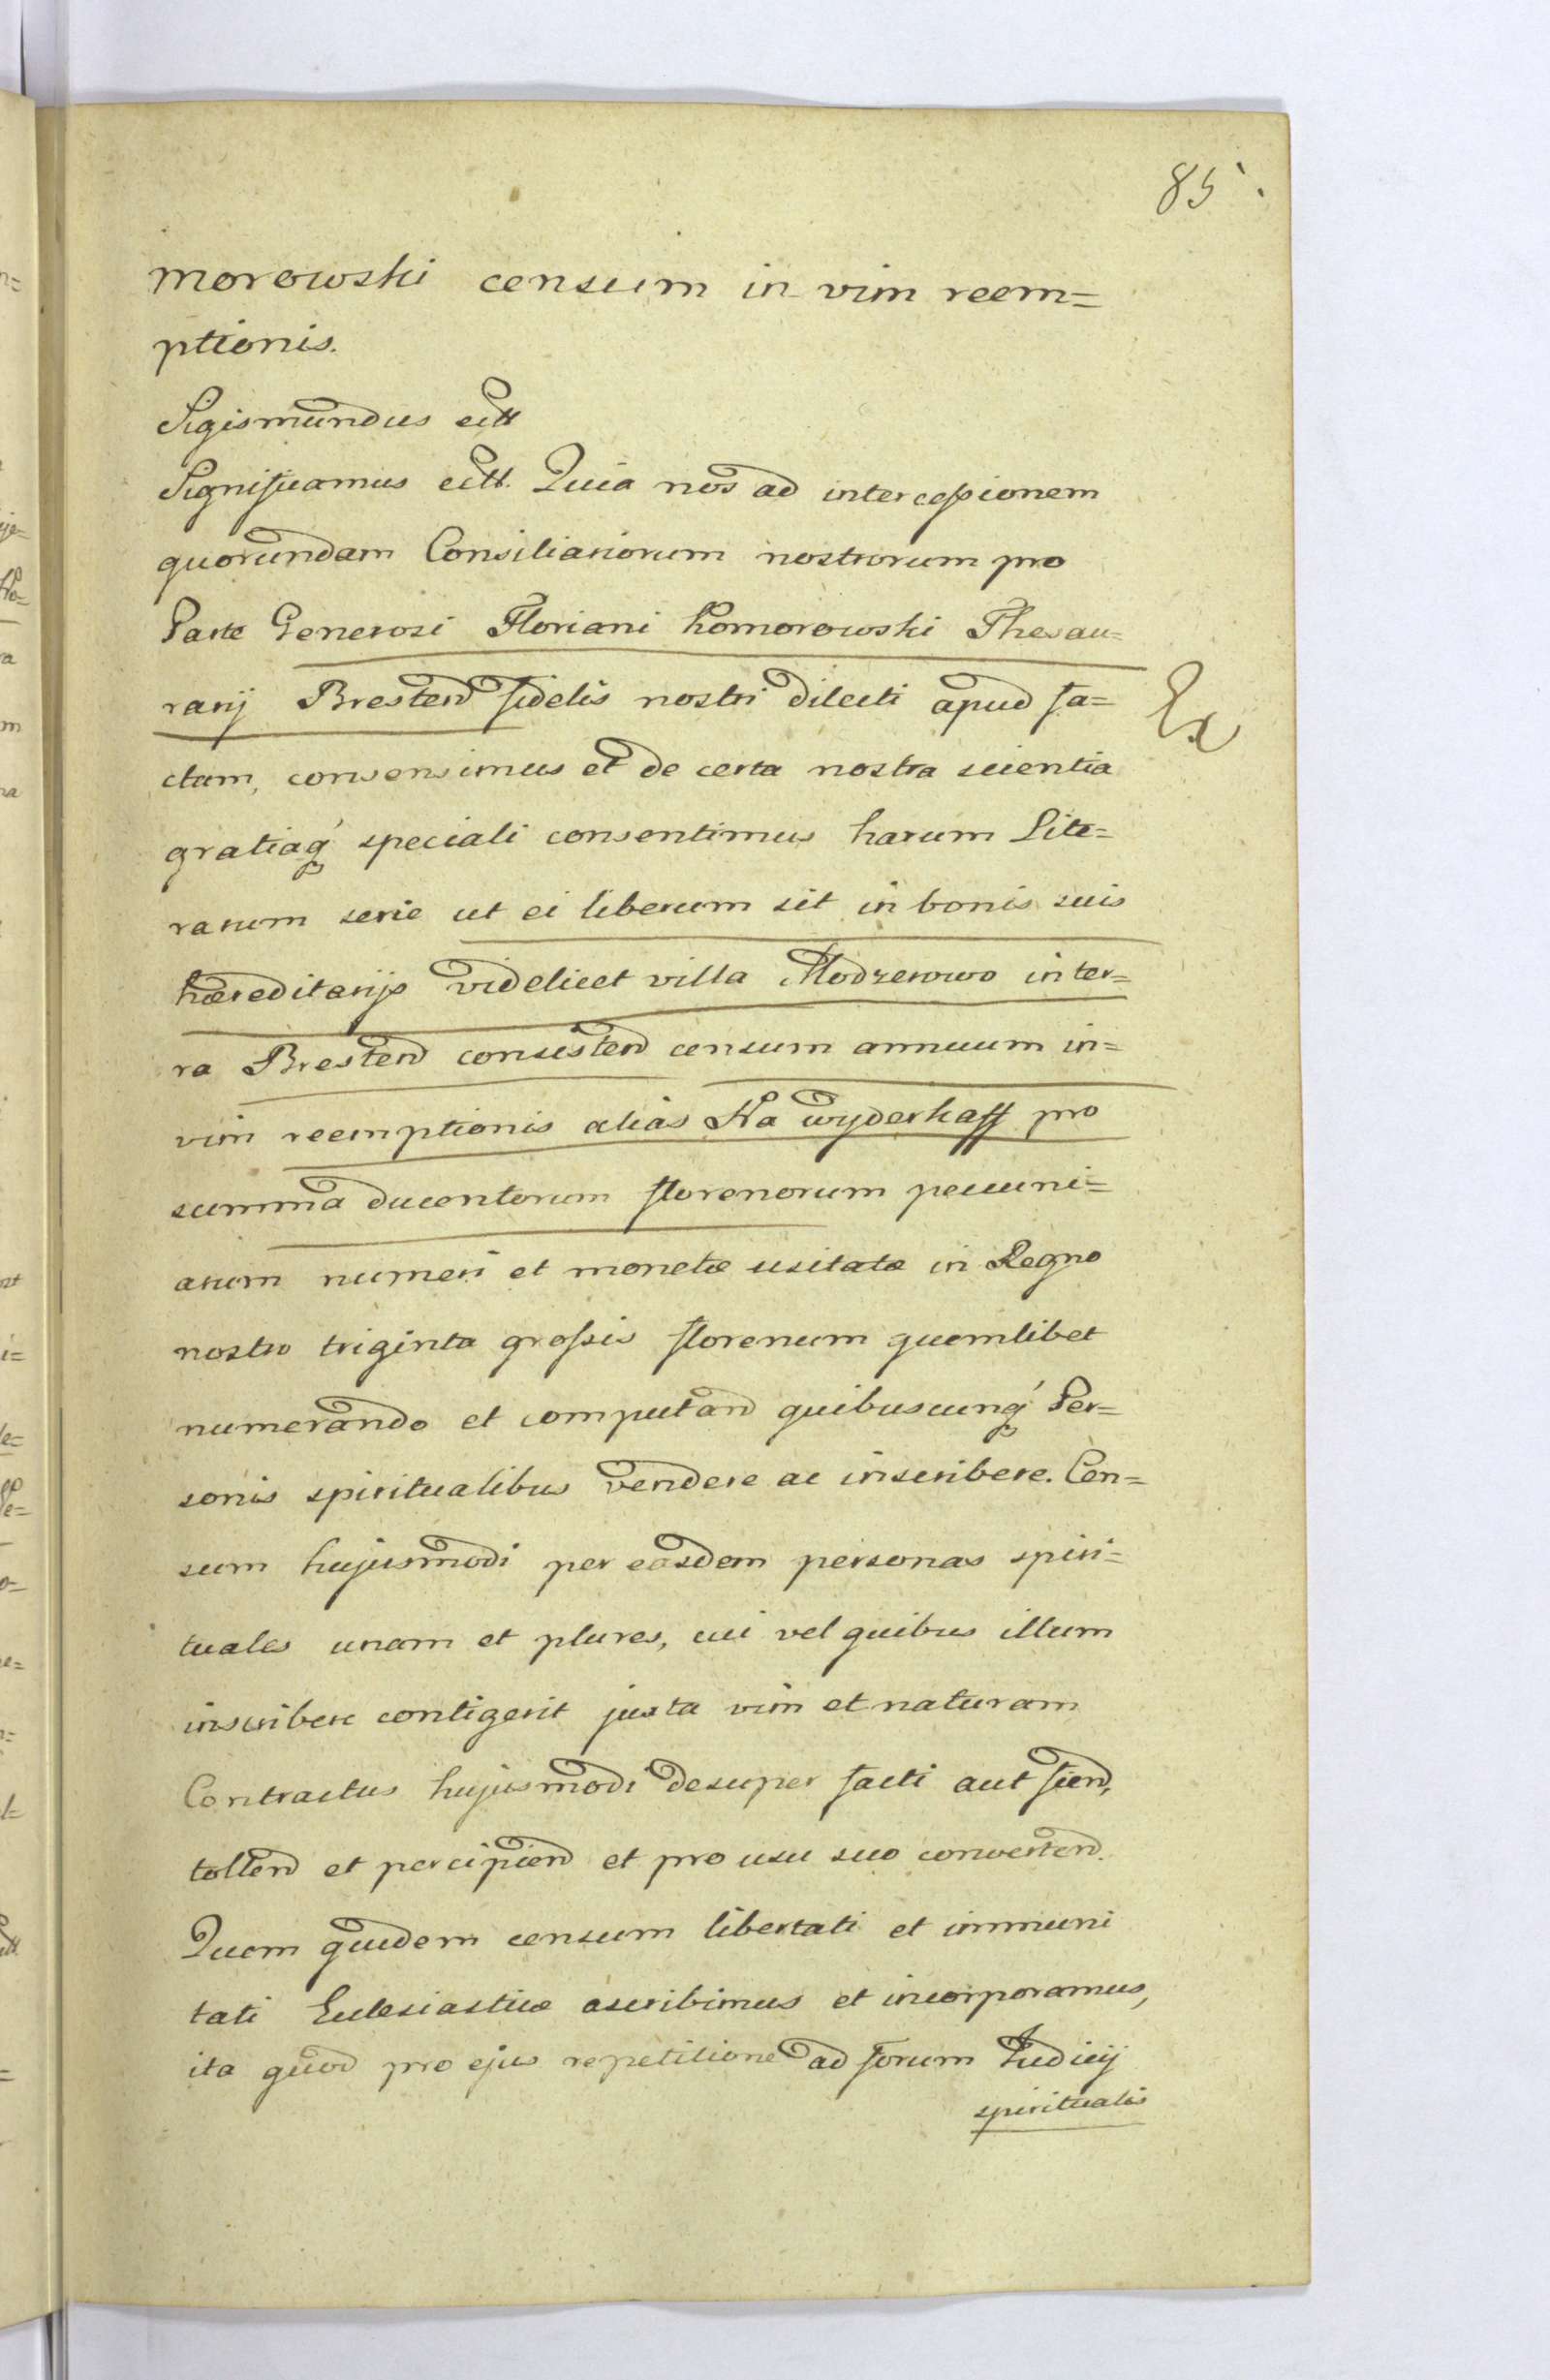 85.
morowski censum in vim reem=
ptionis.
Sigismundus ectt
Significamus ectt. Quia nos ad intercessionem
quorundam Consiliariorum nostrorum pro
Parte Generosi Floriani Komorowski Thesau=
rarij Bresten fidelis nostri dilecti apud fa=
ctam, consensimus et de certa nostra scientia
gratiaq́ speciali consentimus harum Lite=
rarum serie ut ei liberum sit in bonis suis
hæreditarijs videlicet villa Modzerowo in ter=
ra Bresten consisten censum annuum in=
vim reemptionis alias Na wyderkaff pro
summa ducentorum florenorum pecuni=
arum numeri et monetæ usitatæ in Regno
nostro triginta grossis florenum quemlibet
numerando et computan quibuscunq́ Per=
sonis spiritualibus vendere ac inscribere. Cen=
sum hujusmodi per easdem personas spiri=
tuales unam et plures, cui vel quibus illum
inscribere contigerit juxta vim et naturam
Contractus hujusmodi desuper facti aut fien,
tollen et percipien et pro usu suo converten.
Quem quidem censum libertati et immuni
tati Eclesiasticæ ascribimus et incorporamus,
ita quod pro ejus repetitione ad forum Judicij
spiritualis